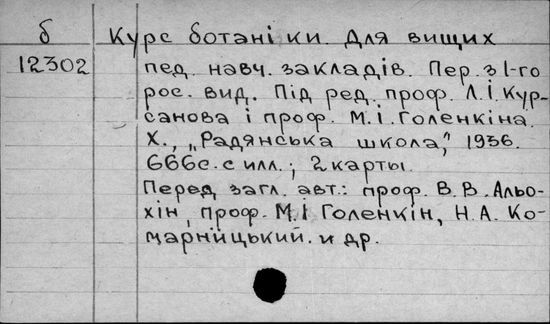 б Курс ботаніки. Для вищих
12302 пед. навч. закладів. Пер. з І-го
рос. вид. Під ред. проф. Л.І. Кур-
санова і проф. М.І. Голенкіна.
Х., „Радянська школа," 1936.
666с. с илл.; 2 карты.
Перед загл. авт.: проф. В.В. Альо-
хін, проф. М.І Голенкін, Н.А. Ко-
марніцький. и др.